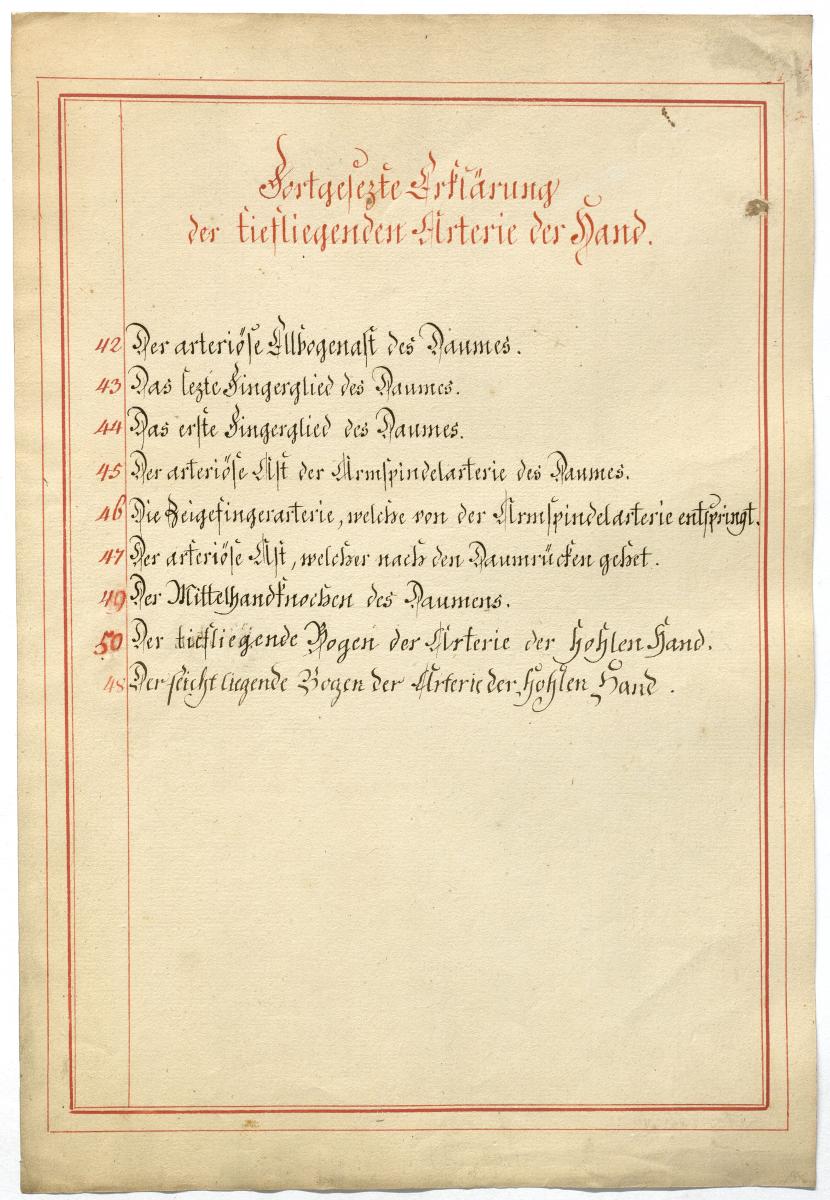 Fortgesezte Erklärung
der tiefliegenden Arterie der Hand.
42 Der arteriöse Ellbogenast des Daumes.
43 Das lezte Fingerglied des Daumes.
44 Das erste Fingerglied des Daumes.
45 Der arteriöse Ast der Armspindelarterie des Daumes.
46 Die Zeigefingerarterie, welche von der Armspindelarterie entspringt.
47 Der arteriöse Ast, welcher nach den Daumrücken gehet.
49 Der Mittelhandknochen des Daumens.
50 Der tiefliegende Bogen der Arterie der hohlen Hand.
48 Der seicht liegende Bogen der Arterie der hohlen Hand.